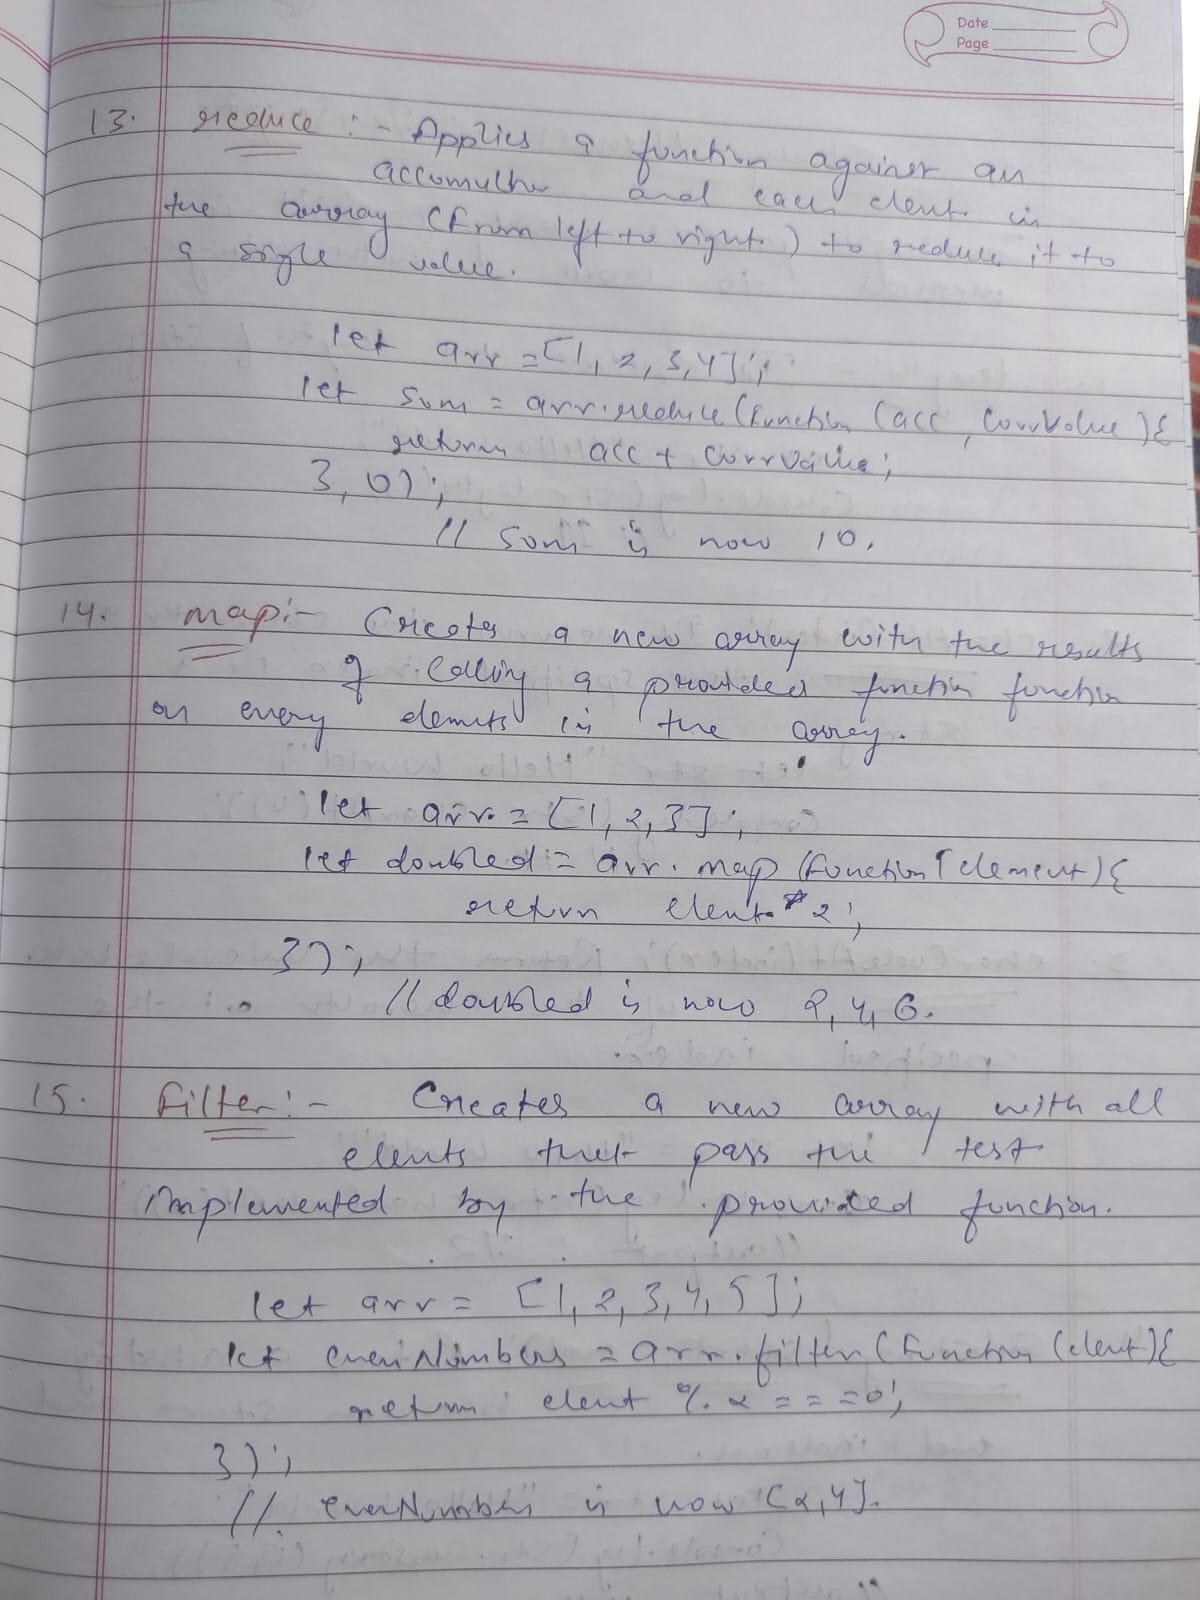 Date
Page
13. reduce :- Applies a function against an
accomulter and each elent in
the array (From left to right.) to reduce it to
a single value.
let arr = [1, 2, 3, 4];
let som = arr.reduce (function (acc, CorrValue) {
return acc + CorrValue;
}, 0);
// Som is now 10.
14. map:- Creates a new array with the results
of calling a provided function function
on every elemnts in the array.
let arr = [1, 2, 3];
let doubled = arr.map (function (element) {
return elent * 2;
});
// doubled is now 2, 4, 6.
15. Filter:- Creates a new array with all
elents that pass the test
implemented by the provided function.
let arr = [1, 2, 3, 4, 5];
let evenNumbers = arr.filter (Function (elent) {
return elent % 2 = = = 0;
});
// evenNumbers is now [2, 4].